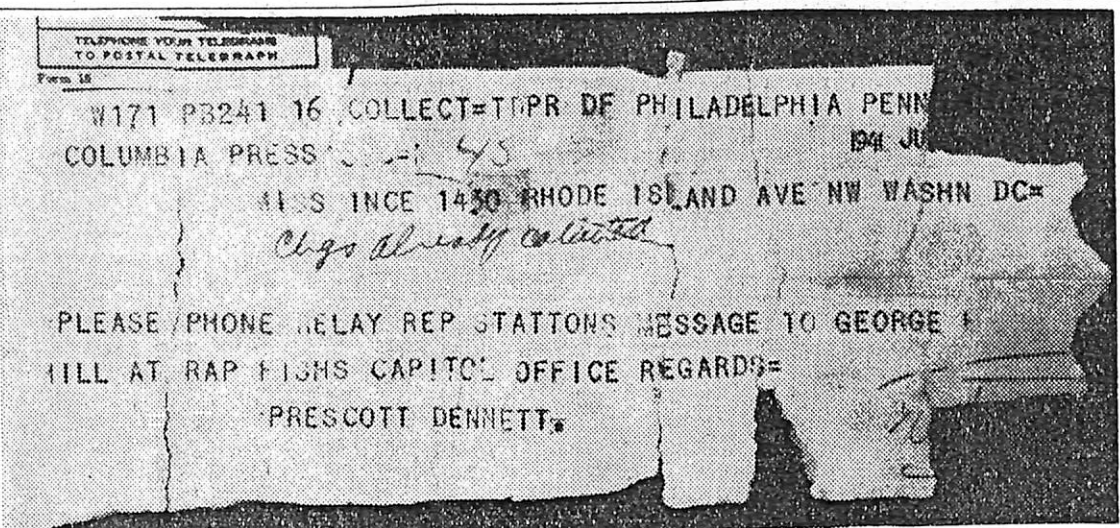 TELEPHONE YOUR TELEGRAMS
TO POSTAL TELEGRAPH
Form 16
W171 PB241 16 COLLECT=TDPR DF PHILADELPHIA PENN
1941 JU
COLUMBIA PRESS 45
MISS INCE 1430 RHODE ISLAND AVE NW WASHN DC=
Chgs already collected
PLEASE PHONE RELAY REP STATTONS MESSAGE TO GEORGE
HILL AT RAP FISHS CAPITOL OFFICE REGARDS=
PRESCOTT DENNETT.